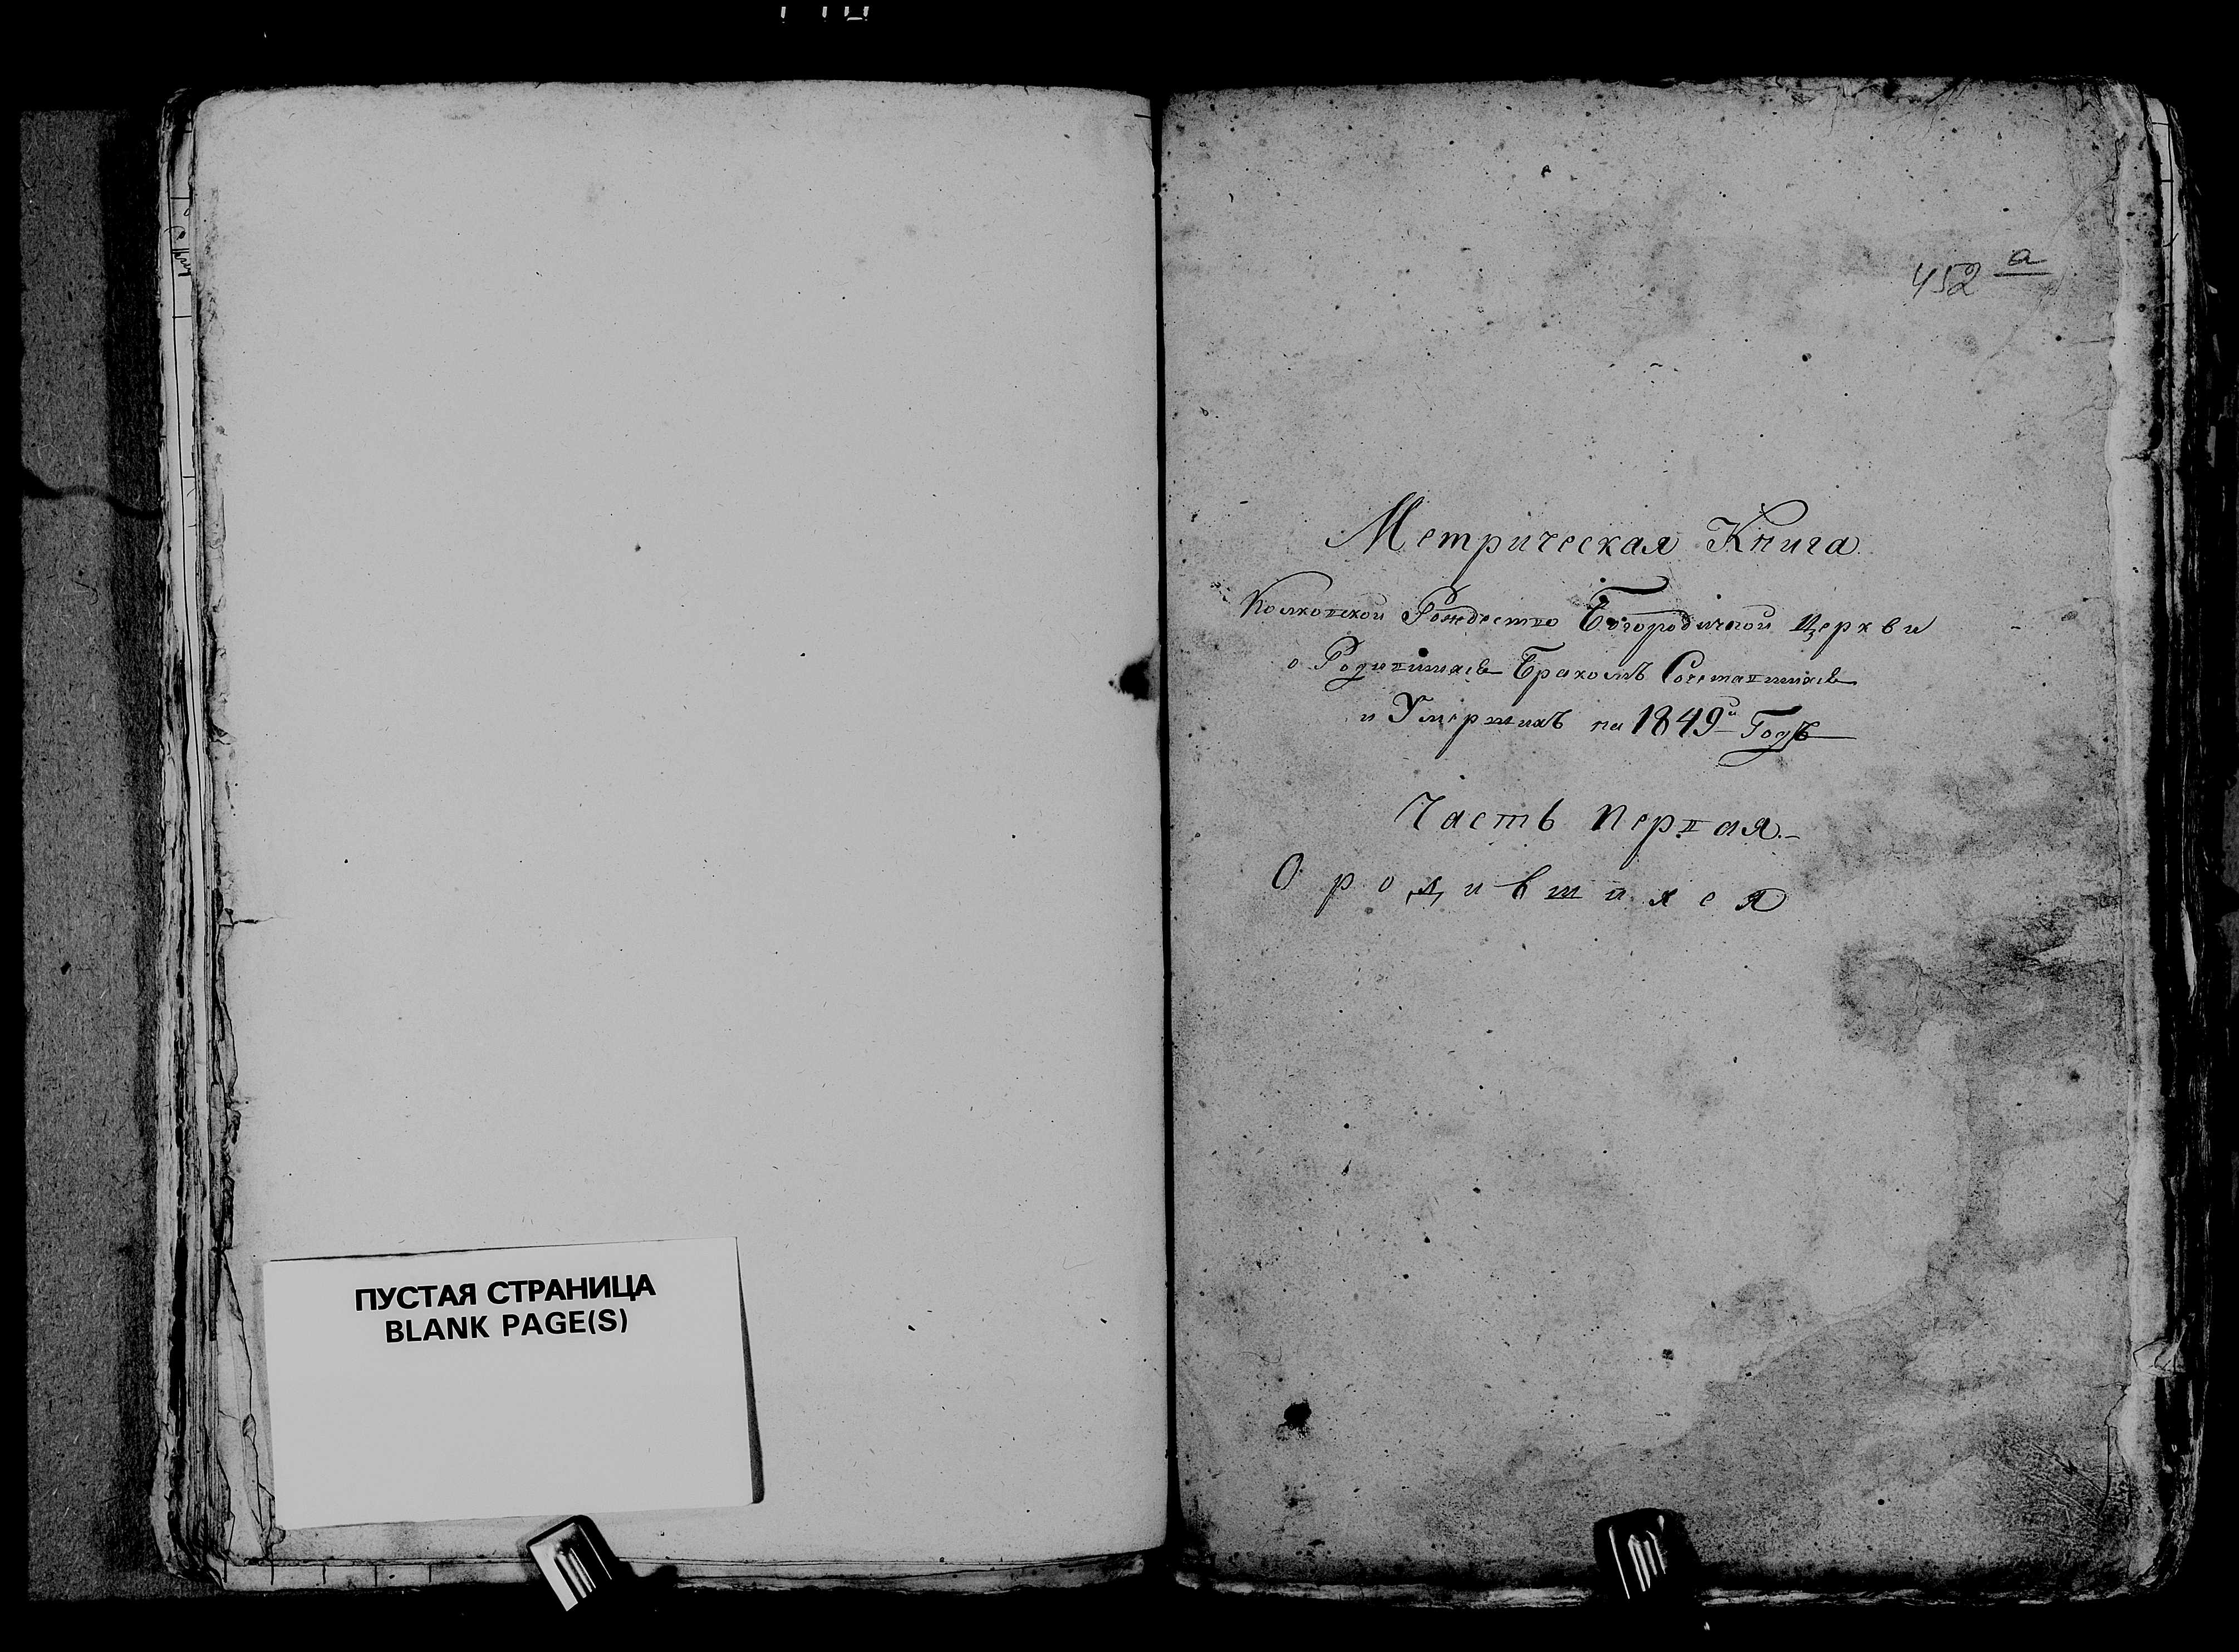 ПУСТАЯ СТРАНИЦА
BLANK PAGE(S)
452 а
Метрическая Книга
Рождество Богородичной Церкви
о Родившихъ Бракомъ Сочетавшихъ
и Умершихъ на 1849й Годъ
Часть Первая.
О родившихся